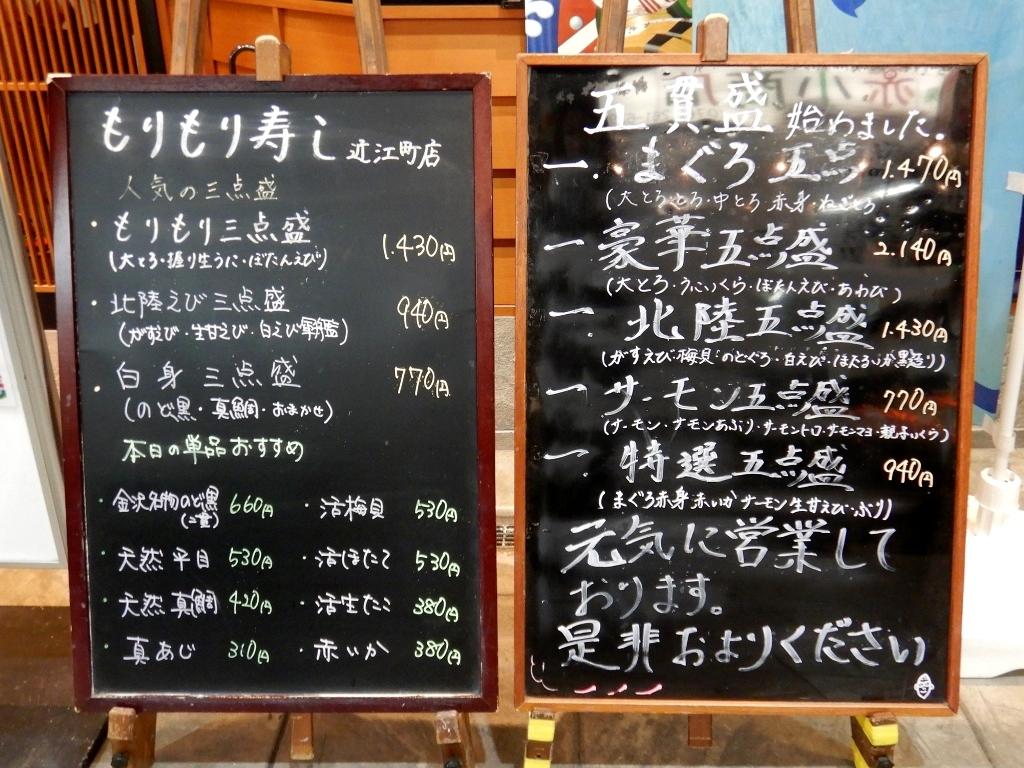 もりもり寿し 近江町店
人気の三点盛
・もりもり三点盛 1.430円
(大とろ・握り生うに・ぼたんえび)
・北陸えび三点盛 940円
(がすえび・生甘えび・白えび軍艦)
・白身三点盛 770円
(のど黒・真鯛・おまかせ)
本日の単品おすすめ
・金沢名物のど黒 660円
(一貫)
・活梅貝 530円
・天然平目 530円
・活ほたて 530円
・天然真鯛 420円
・活生たこ 380円
・真あじ 310円
・赤いか 380円
五貫盛 始めました。
一. まぐろ五点 1.470円
(大とろ・とろ・中とろ 赤身・ねぎとろ
一. 豪華五点盛 2.140円
(大とろ・うに・いくら・ぼたんえび・あわび)
一. 北陸五点盛 1.430円
(がすえび・梅貝・のどぐろ・白えび・ほたるいか黒造り)
一. サーモン五点盛 770円
(サーモン・サーモンあぶり・サーモントロ・サーモンマヨ・親子いくら)
一. 特選五点盛 940円
(まぐろ赤身 赤いか サーモン 生甘えび・ぶり)
元気に営業して
おります。
是非およりください